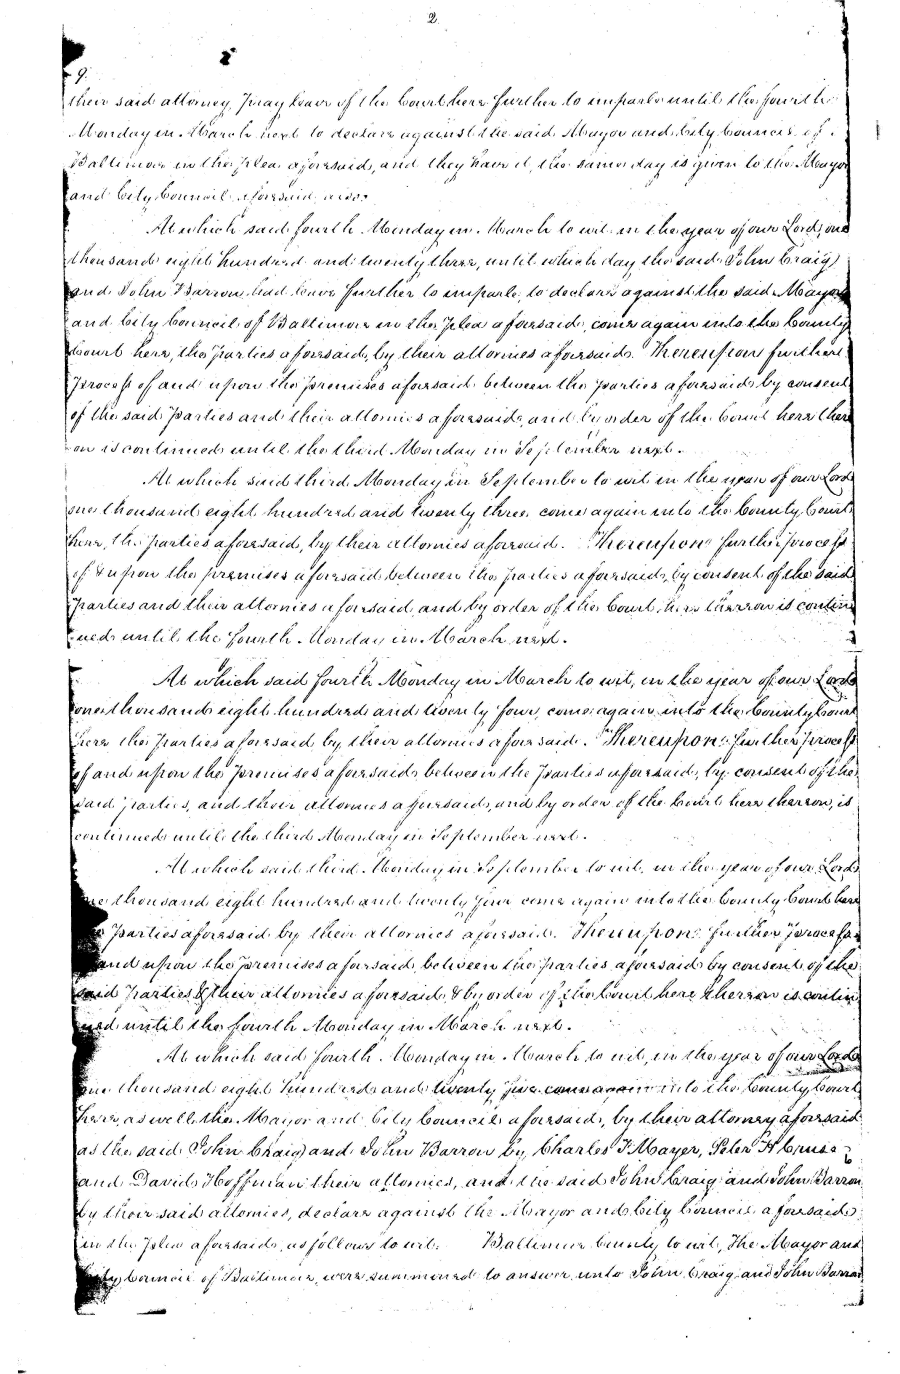 2
9.
their said attorney, pray leave of the Court here further to imparle until the fourth
Monday in March next to declare against the said Mayor and City Council of
Baltimore in the plea aforesaid, and they have it, the same day is given to the Mayor
and City Council aforesaid also.
At which said fourth Monday in March to wit in the year of our Lord, one
thousand eight hundred and twenty three, until which day the said John Craig
and John Barron had leave further to imparle to declare against the said Mayor
and City Council of Baltimore in the Plea aforesaid, come again into the County
Court here, the Parties aforesaid, by their attornies aforesaid. Thereupon further
process of and upon the premises aforesaid between the parties aforesaid by consent
of the said Parties and their attornies aforesaid, and by order of the Court here there
on is continued until the third Monday in September next.
At which said third Monday in September to wit in the year of our Lord
one thousand eight hundred and twenty three come again into the County Court
here, the parties aforesaid, by their attornies aforesaid. Thereupon further process
of & upon the premises aforesaid between the parties aforesaid, by consent of the said
parties and their attornies aforesaid and by order of the Court here thereon is contin
ued until the fourth Monday in March next.
At which said fourth Monday in March to wit, in the year of our Lord
one thousand eight hundred and twenty four, come again into the County Court
here the parties aforesaid by their attornies aforesaid. Thereupon further process
of and upon the premises aforesaid between the Parties aforesaid, by consent of the
said parties, and their attornies aforesaid, and by order of the Court here thereon, is
continued until the third Monday in September next.
At which said third Monday in September to wit, in the year of our Lord
one thousand eight hundred and twenty four come again into the County Court here
the Parties aforesaid by their attornies aforesaid. Thereupon further process of
and upon the premises aforesaid, between the parties aforesaid by consent of the
said parties & their attornies aforesaid & by order of the Court here thereon is contin
ued until the fourth Monday in March next.
At which said fourth Monday in March to wit, in the year of our Lord
one thousand eight hundred and twenty five come again into the County Court
here, as well the Mayor and City Council aforesaid, by their attorney aforesaid
as the said John Craig and John Barron by Charles F Mayer, Peter H Cruse
and David Hoffman their attornies, and the said John Craig and John Barron
by their said attornies, declare against the Mayor and City Council aforesaid
in the plea aforesaid, as follows to wit. Baltimore County to wit, The Mayor and
City Council of Baltimore, were summoned to answer unto John Craig and John Barron